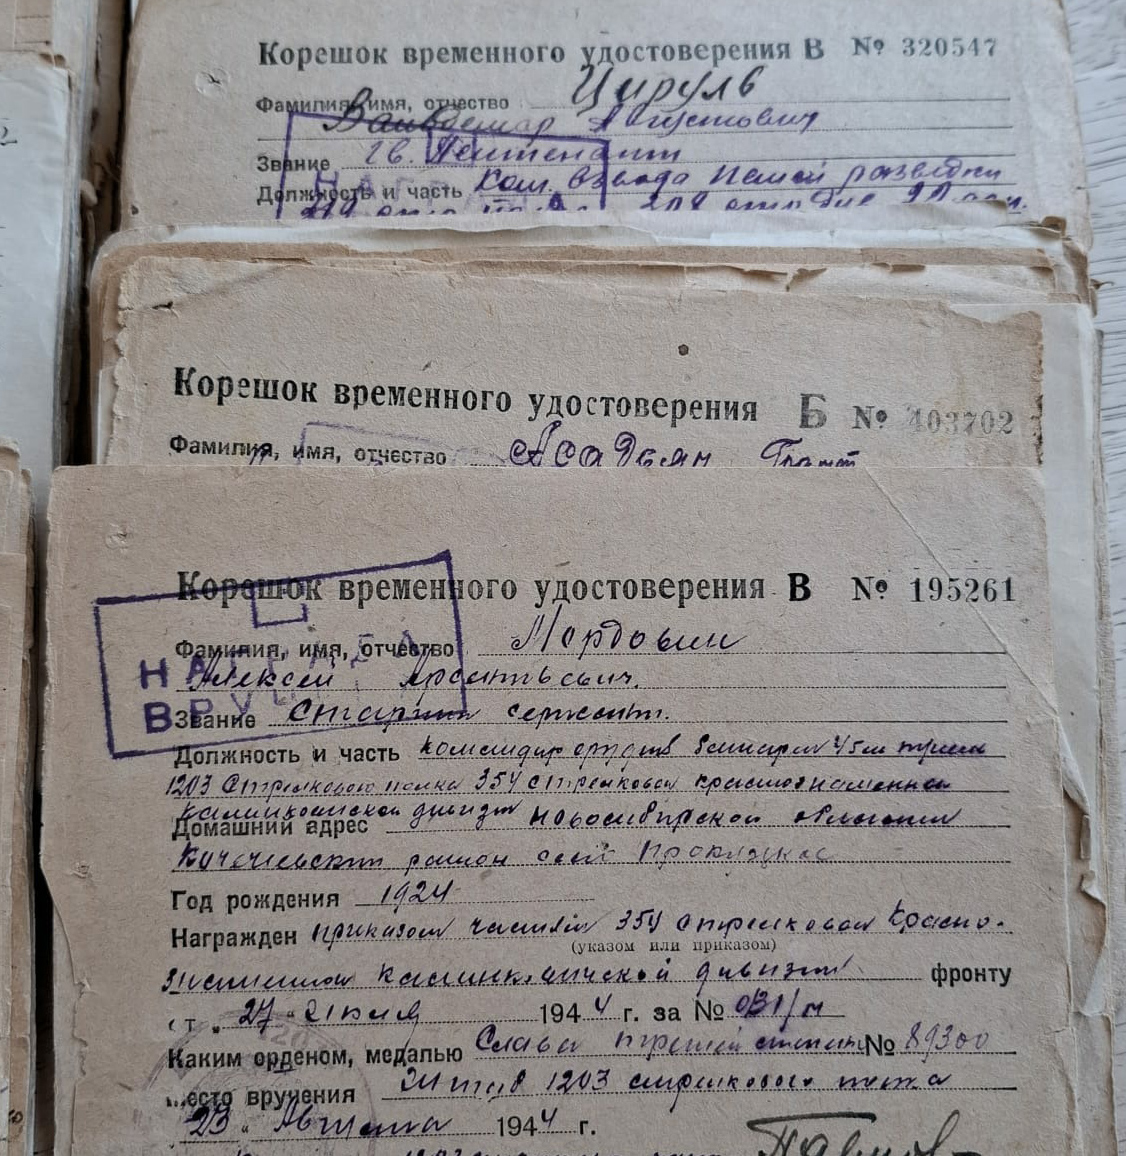 Корешок временного удостоверения В № 320547
Фамилия, имя, отчество Цируль
Вальдемар Августович
Звание гв. Лейтенант
Должность и часть Ком. взвода пешей разведки
Корешок временного удостоверения Б № 403702
Фамилия, имя, отчество Асадьян Грант
Корешок временного удостоверения В № 195261
Фамилия, имя, отчество Мордовин
Алексей Арсентьевич.
НАГРАДА
ВРУЧ
Звание Старший сержант.
Должность и часть командир орудия батареи 45мм пушек
1203 Стрелкового полка 354 стрелковой краснознаменной
калинковичской дивизии
Домашний адрес Новосибирской области
район село
Год рождения 1924
Награжден приказом частям 354 стрелковой Красно-
(указом или приказом)
знаменной калинковичской дивизии фронту
от 27 июля 1944 г. за № 031/н
Каким орденом, медалью Слава третьей степени № 89300
место вручения Штаб 1203 стрелкового полка
23 Августа 1944 г.